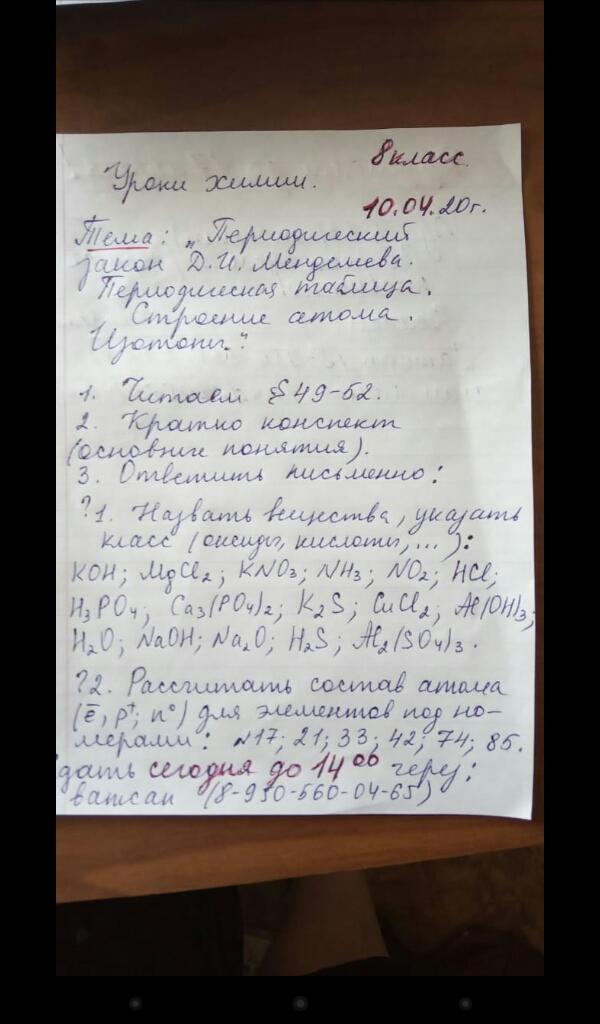 8 класс.
Уроки химии.
10.04.20г.
Тема: „Периодический
закон Д.И. Менделеева.
Периодическая таблица.
Строение атома.
Изотопы."
1. Читаем § 49-52.
2. Кратко конспект
(основные понятия).
3. Ответить письменно:
?1. Назвать вещества, указать
класс (оксиды, кислоты, ...):
KOH; MgCl2; KNO3; NH3; NO2; HCl;
H3PO4; Ca3(PO4)2; K2S; CuCl2; Al(OH)3;
H2O; NaOH; Na2O; H2S; Al2(SO4)3.
?2. Рассчитать состав атома
(ē, p+; n°) для элементов под но-
мерами: №17; 21; 33; 42; 74; 85.
дать сегодня до 14 00 через:
ватсап (8-950-560-04-65)